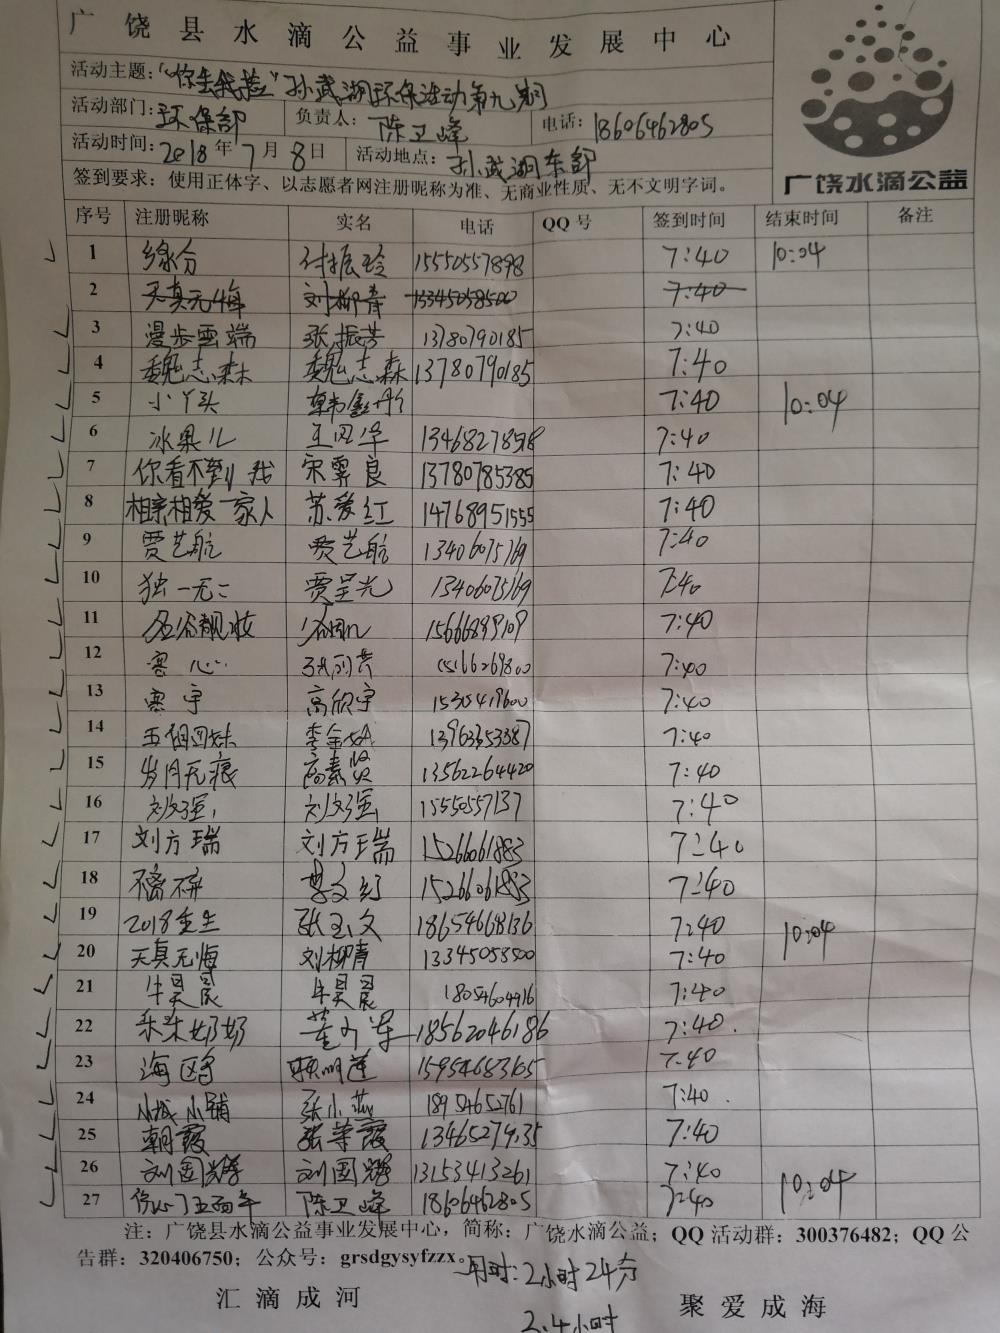 广饶县水滴公益事业发展中心
活动主题："你丢我捡"孙武湖环保活动第九期
活动部门：环保部 负责人：陈卫峰 电话：18606462805
活动时间：2018年7月8日 活动地点：孙武湖东部
签到要求：使用正体字、以志愿者网注册昵称为准、无商业性质、无不文明字词。
广饶水滴公益
序号 注册昵称 实名 电话 QQ号 签到时间 结束时间 备注
1 缘分 付振玲 15550557898 7:40 10:04
2 天真无悔 刘柳青 13345058500 7:40
3 漫步雲端 张振芳 13780790185 7:40
4 魏志森 魏志森 13780790185 7:40
5 小丫头 韩鑫彤 7:40 10:04
6 冰果儿 王风华 7:40
7 你看不到我 宋霁良 13780785385 7:40
8 相亲相爱一家人 苏爱红 14768951555 7:40
9 贾艺航 贾艺航 13406075769 7:40
10 独一无二 贾呈光 13406075769 7:40
11 15666899109 7:40
12 寒心 7:40
13 寒宇 高欣宇 15305419600 7:40
14 7:40
15 岁月无痕 高素贤 13562264420 7:40
16 刘文强 刘文强 15550557137 7:40
17 刘方瑞 刘方瑞 15266061883 7:40
18 不离不弃 15266061883 7:40
19 2018重生 张玉文 18654668136 7:40 10:04
20 天真无悔 刘柳青 13345058500 7:40
21 牛昊晨 牛昊晨 18054604916 7:40
22 朵朵奶奶 18562046186 7:40
23 海鸥 顾明莲 15954683165 7:40
24 小城小铺 张小燕 18954652761 7:40
25 朝霞 张等霞 13465279135 7:40
26 刘国辉 刘国辉 13153413261 7:40 10:04
27 陈卫峰 18606462805 7:40
注：广饶县水滴公益事业发展中心，简称：广饶水滴公益；QQ活动群：300376482；QQ公
告群：320406750；公众号：grsdgysyfzzx。
用时：2小时24分
汇滴成河 聚爱成海
2.4小时